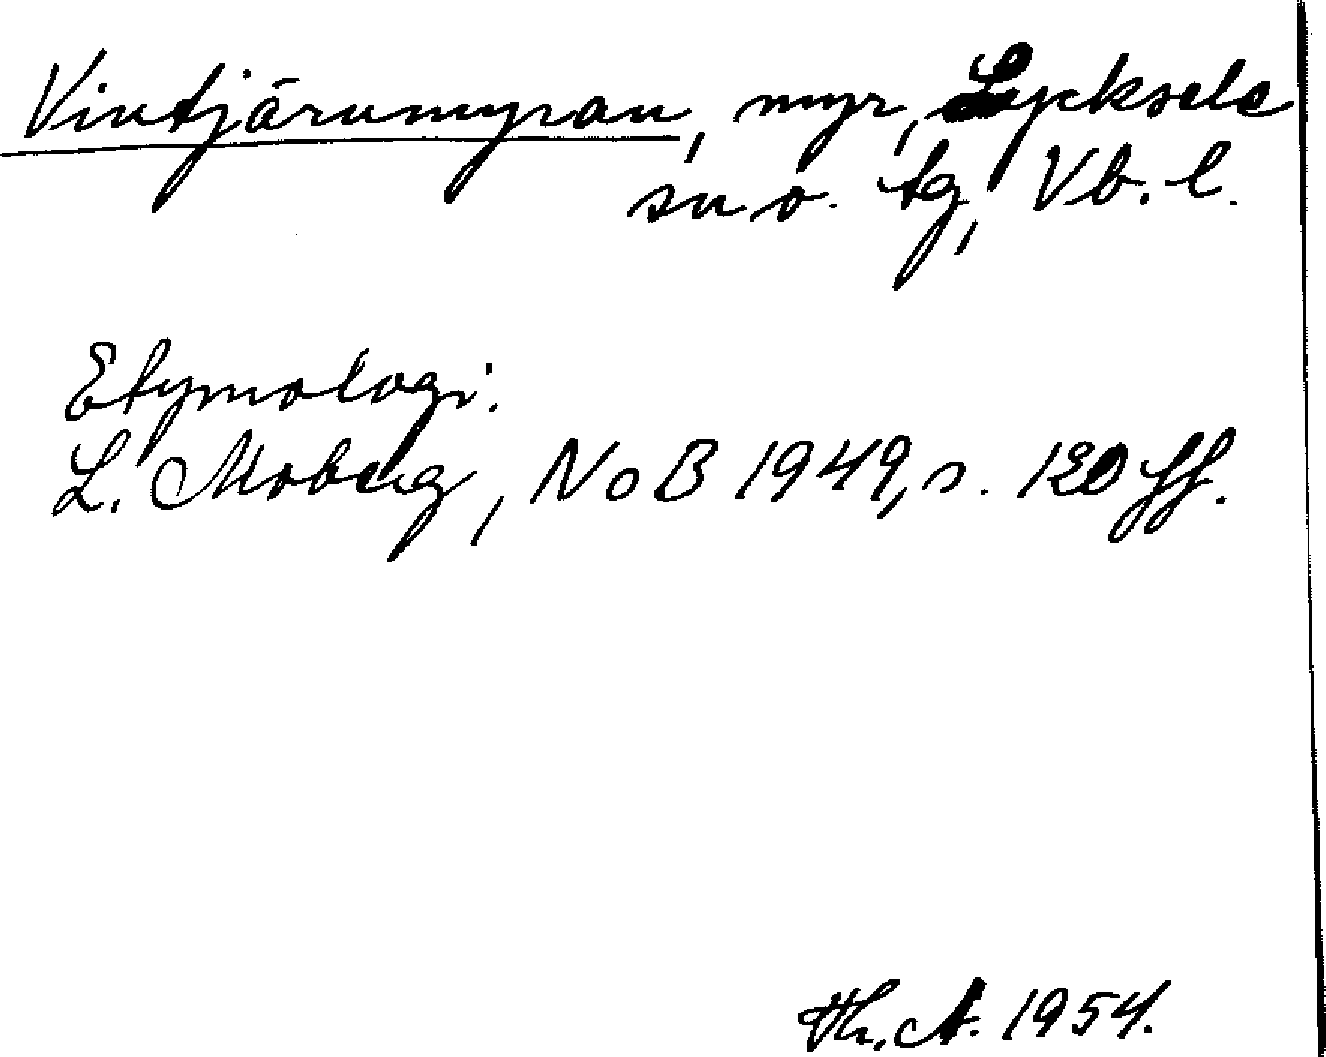 Vintjärnmyran, myr, Lycksele
sn o. tg, Vb. l.
Etymologi:
L. Moberg, NoB 1949, s. 120 ff.
Th. A. 1954.